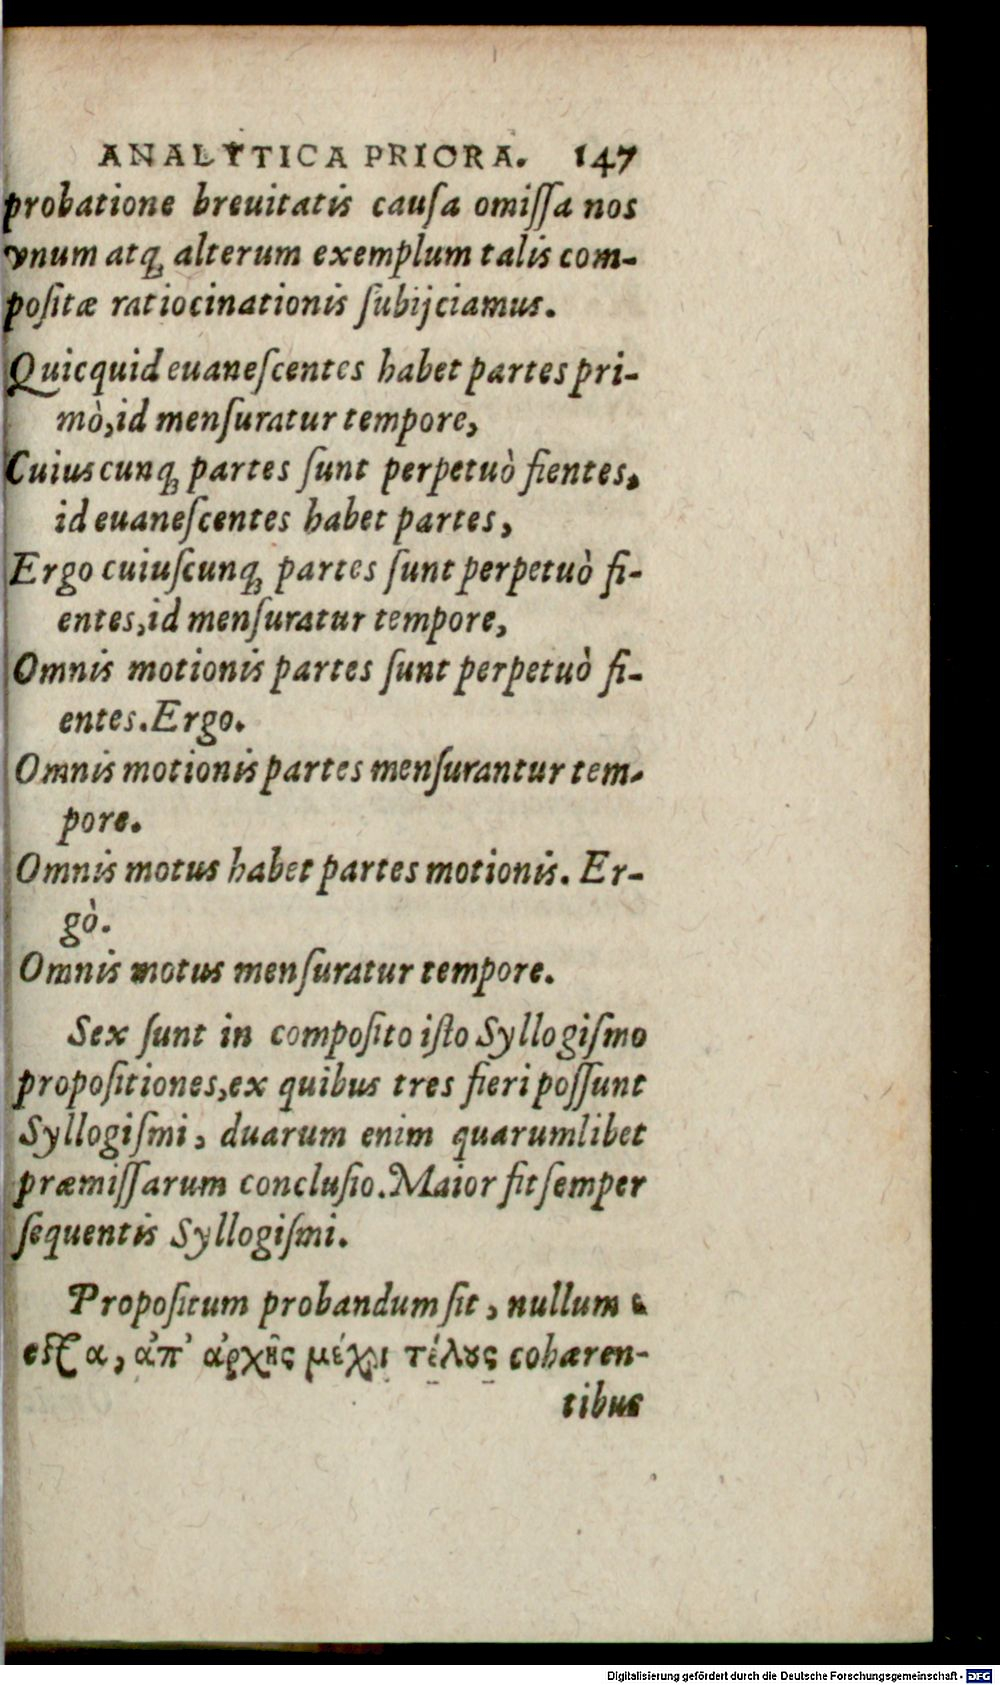 ANALYTICA PRIORA. 147
probatione breuitatis cauſa omiſſa nos
vnum atq́; alterum exemplum talis com-
poſitæ ratiocinationis ſubijciamus.
Quicquid euaneſcentes habet partes pri-
mò, id menſuratur tempore,
Cuiuscunq; partes ſunt perpetuò fientes,
id euaneſcentes habet partes,
Ergo cuiuſcunq; partes ſunt perpetuò fi-
entes, id menſuratur tempore,
Omnis motionis partes ſunt perpetuò fi-
entes. Ergo.
Omnis motionis partes menſurantur tem-
pore.
Omnis motus habet partes motionis. Er-
gò.
Omnis motus menſuratur tempore.
Sex ſunt in compoſito iſto Syllogiſmo
propoſitiones, ex quibus tres fieri poſſunt
Syllogiſmi, duarum enim quarumlibet
præmiſſarum concluſio. Maior fit ſemper
ſequentis Syllogiſmi.
Propoſitum probandum ſit, nullum ε
eſſe α, ἀπ' ἀρχῆς μέχρι τέλους cohæren-
tibus
Digitalisierung gefördert durch die Deutsche Forschungsgemeinschaft - DFG